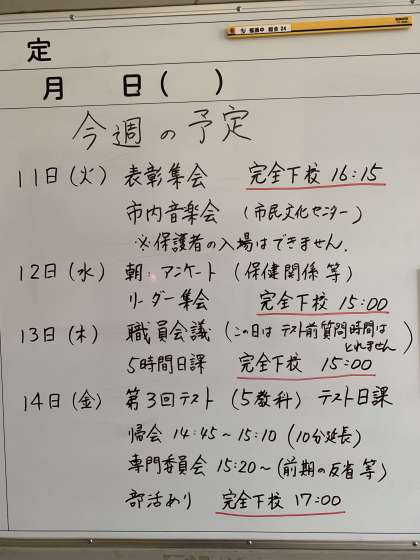 定
月 日( )
今週の予定
11日(火) 表彰集会 完全下校 16:15
市内音楽会 (市民文化センター)
※保護者の入場はできません.
12日(水) 朝:アンケート (保健関係等)
リーダー集会 完全下校 15:00
13日(木) 職員会議 (この日は テスト前質問時間は
とれません)
5時間日課 完全下校 15:00
14日(金) 第3回テスト (5教科) テスト日課
帰会 14:45~15:10 (10分延長)
専門委員会 15:20~(前期の反省等)
部活あり 完全下校 17:00